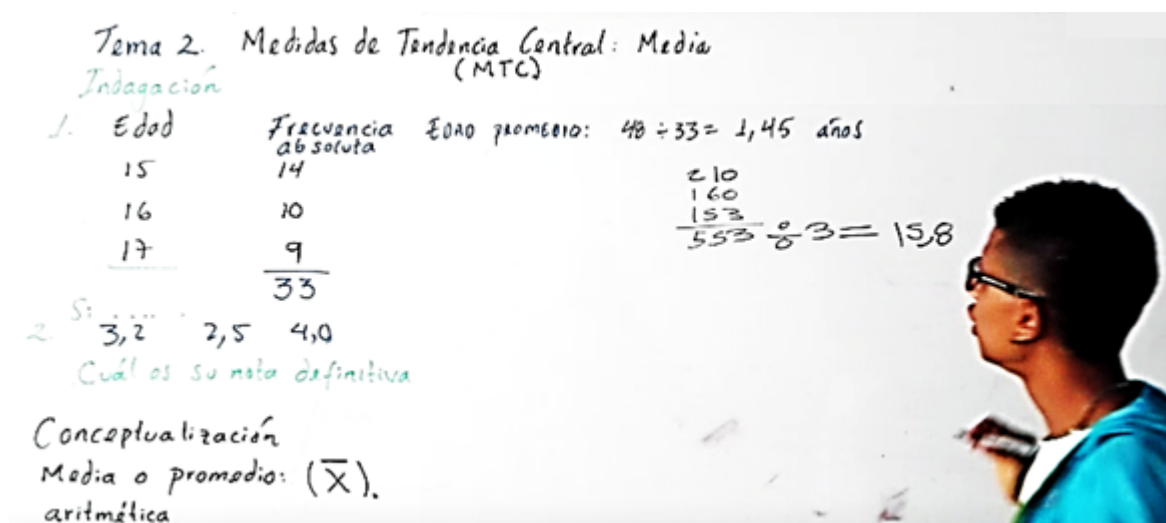 Tema 2. Medidas de Tendencia Central: Media
(MTC)
Indagación
1. Edad Frecuencia absoluta EDAD PROMEDIO: 48 ÷ 33 = 1,45 años
15 14
16 10
17 9
33
210
160
153
553 ÷ 3 = 15,8
Si .....
2. 3,2 2,5 4,0
Cuál es su nota definitiva
Conceptualización
Media o promedio: (X̅).
aritmética